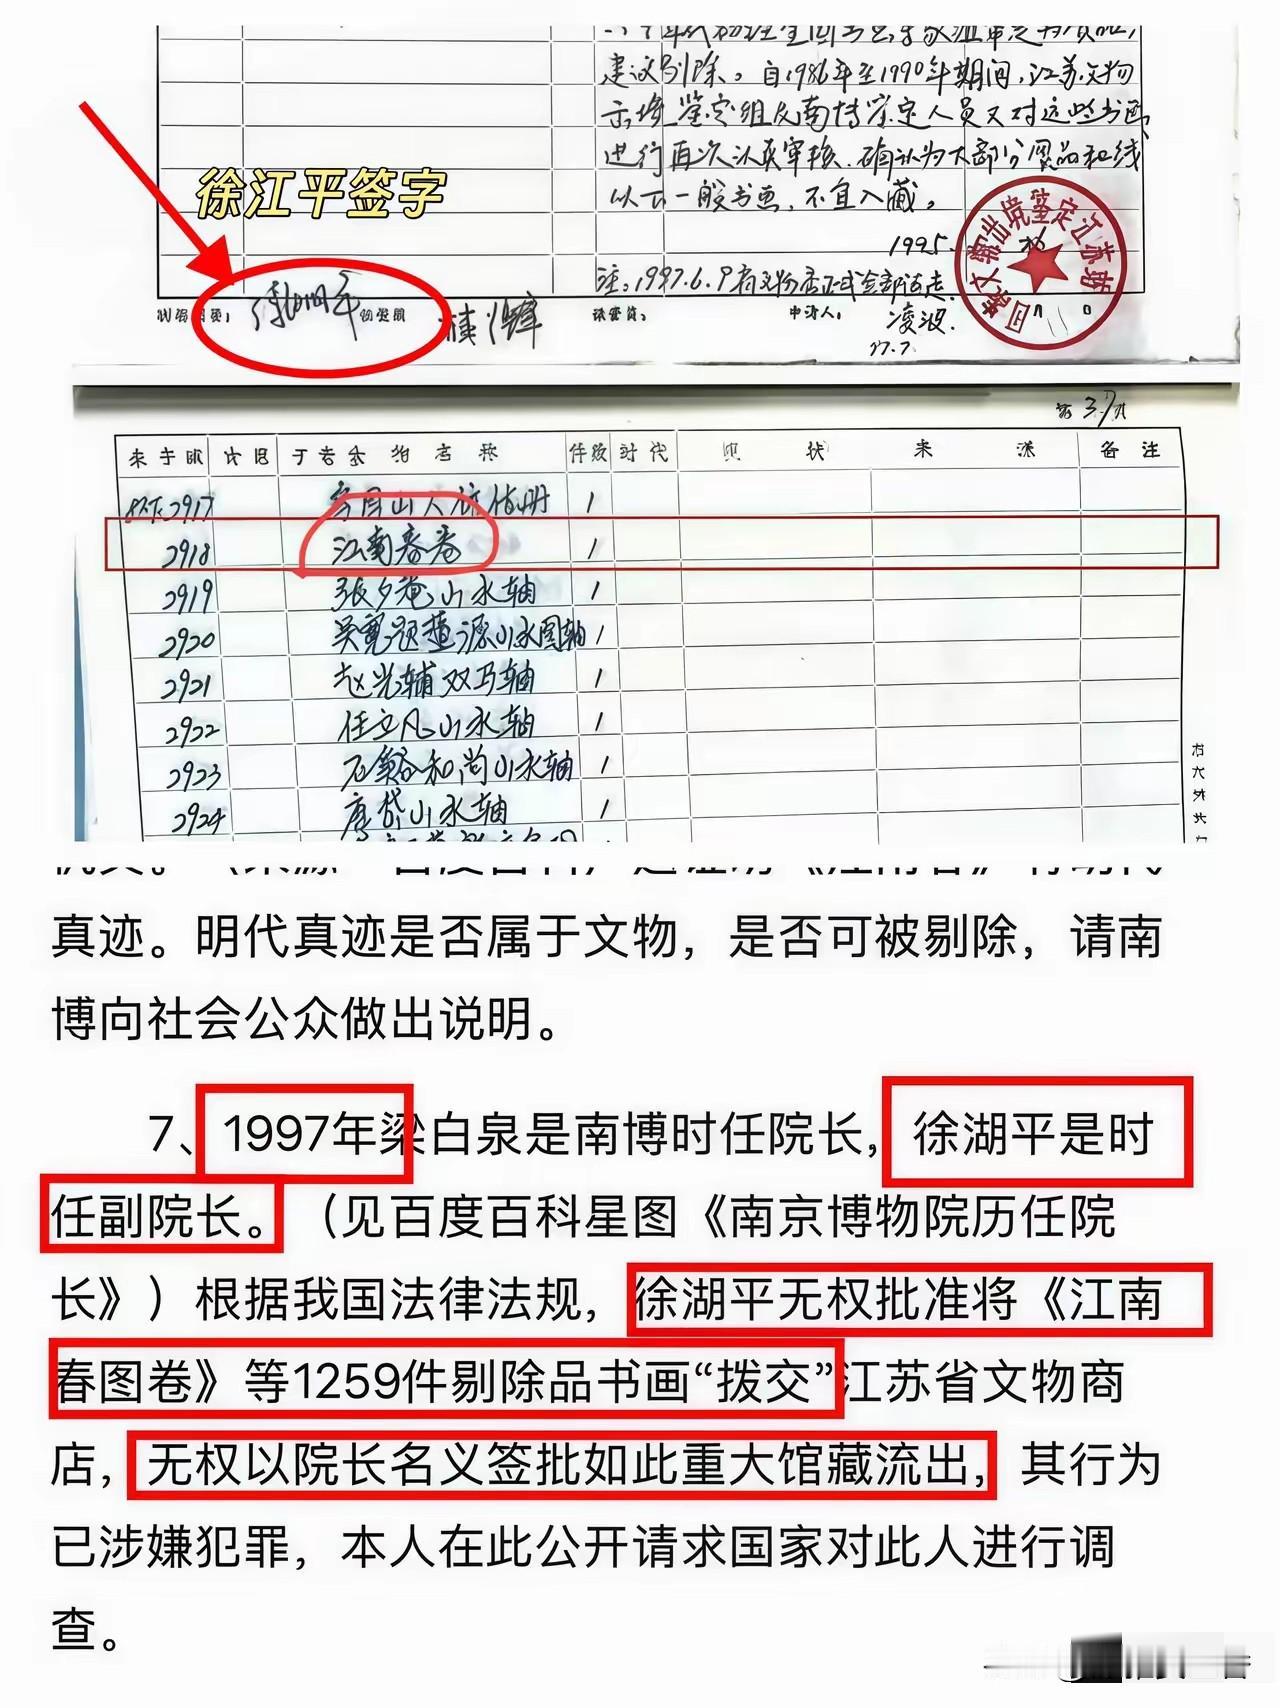 建议剔除。自1986年至1990年期间,江苏文物
出境鉴定组及南博鉴定人员又对这些书画
进行再次认真审核,确认为大部分
以下一般书画,不宜入藏。
徐江平签字
1995.
注:1997.6.9
申请人:
凌波.
97.7.
第37页
件数 时代 备注
2917 1
2918 江南春卷 1
2919 张夕庵山水轴 1
2920 吴宽题董源山水图轴 1
2921 赵光辅双马轴 1
2922 任立凡山水轴 1
2923 石溪和尚山水轴 1
2924 唐岱山水轴 1
真迹。明代真迹是否属于文物,是否可被剔除,请南
博向社会公众做出说明。
7、1997年梁白泉是南博时任院长,徐湖平是时
任副院长。(见百度百科星图《南京博物院历任院
长》)根据我国法律法规,徐湖平无权批准将《江南
春图卷》等1259件剔除品书画“拨交”江苏省文物商
店,无权以院长名义签批如此重大馆藏流出,其行为
已涉嫌犯罪,本人在此公开请求国家对此人进行调
查。